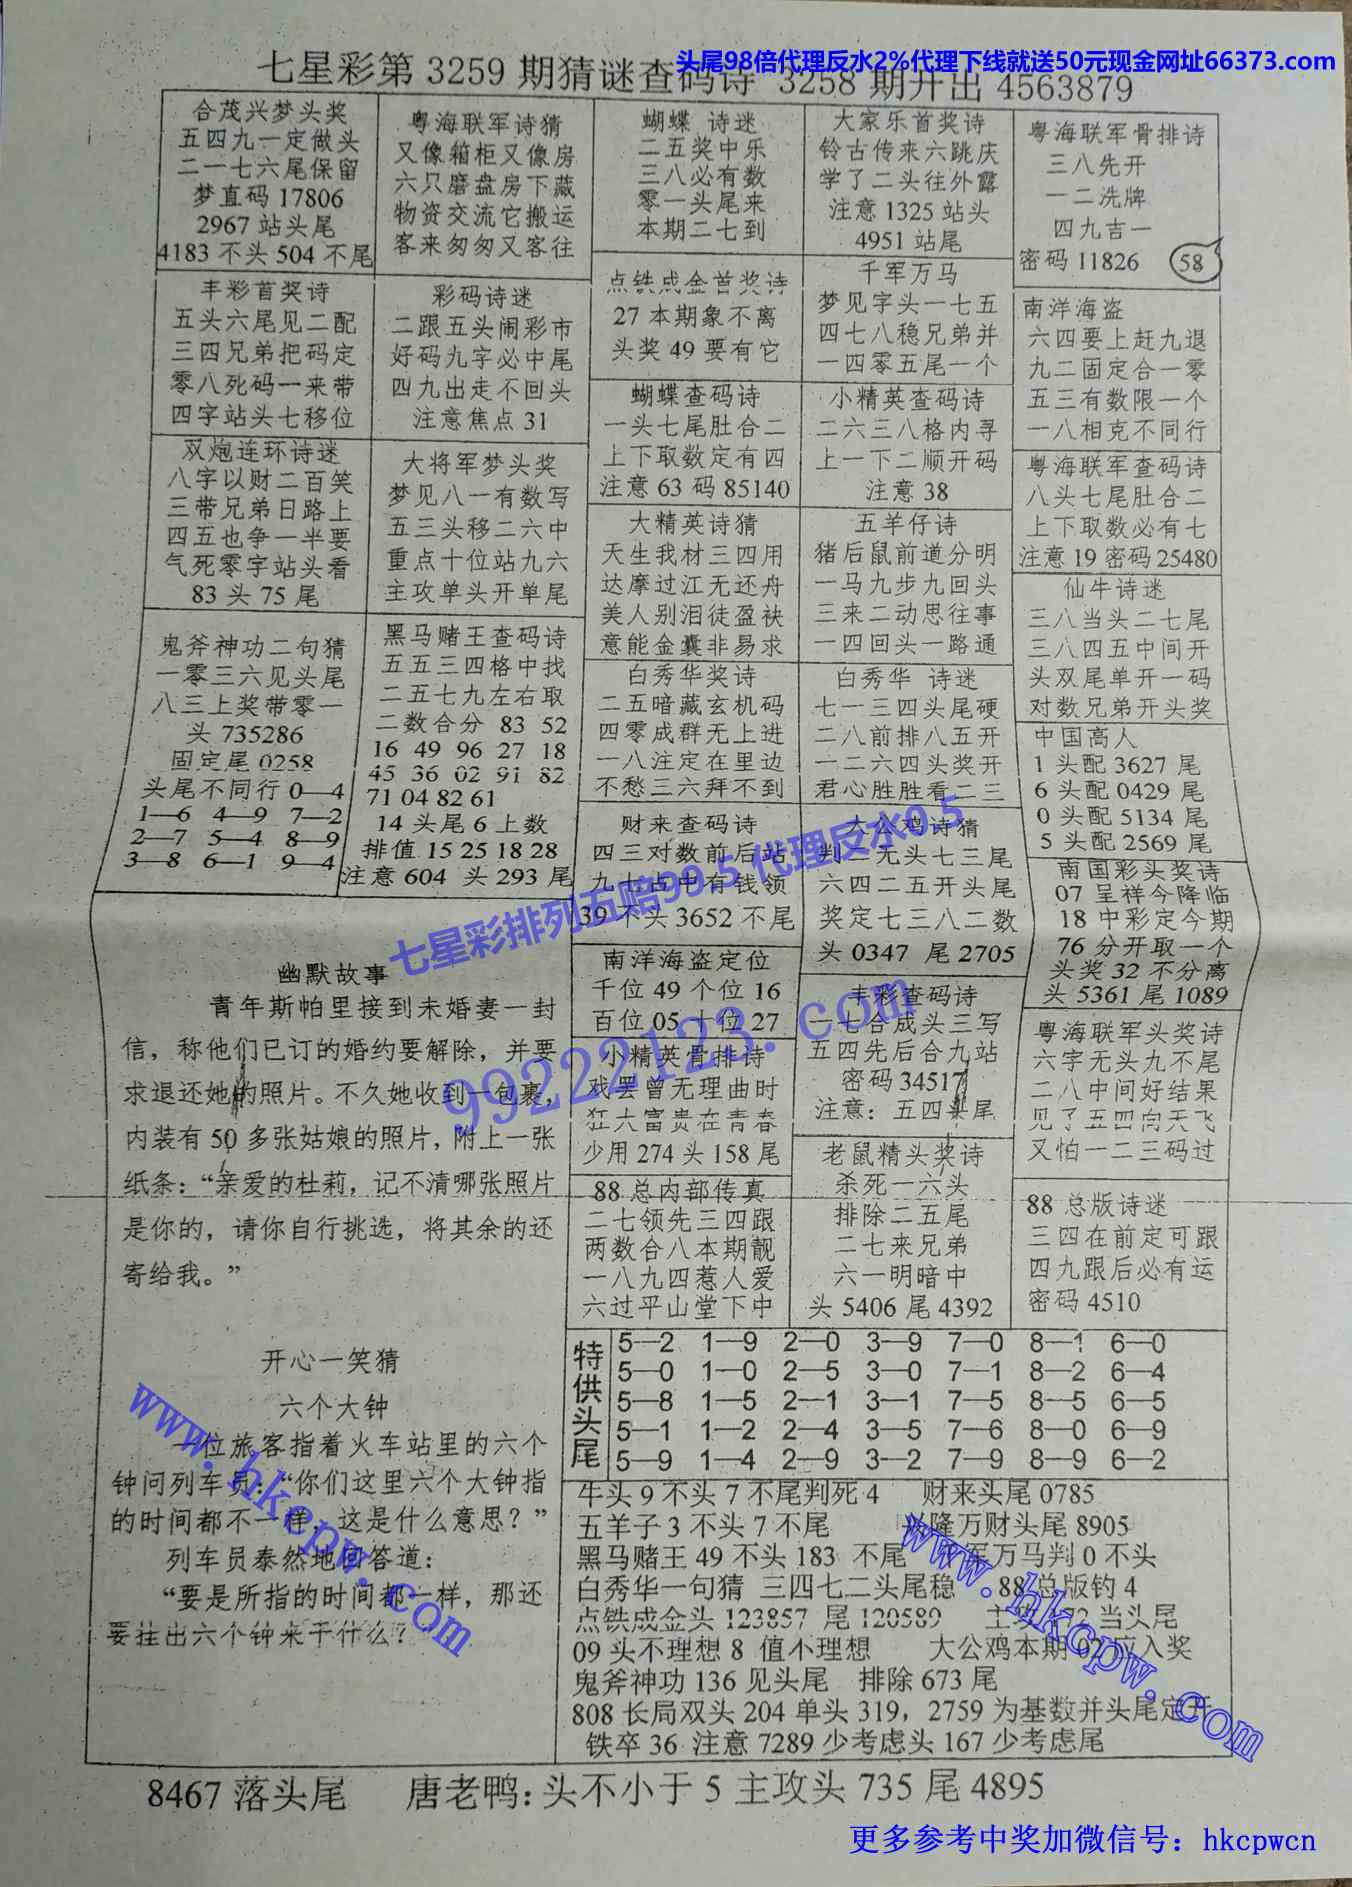 头尾98倍代理反水2%代理下线就送50元现金网址66373.com
七星彩第 3259 期猜谜查码诗 3258 期开出 4563879
合茂兴梦头奖
五四九一定做头
二一七六尾保留
梦直码 17806
2967 站头尾
4183 不头 504 不尾
粤海联军诗猜
又像箱柜又像房
六只磨盘房下藏
物资交流它搬运
客来匆匆又客往
蝴蝶 诗迷
二五奖中乐
三八必有数
零一头尾来
本期二七到
大家乐首奖诗
铃古传来六跳庆
学了二头往外露
注意 1325 站头
4951 站尾
粤海联军骨排诗
三八先开
一二洗牌
四九吉一
密码 11826 58
丰彩首奖诗
五头六尾见二配
三四兄弟把码定
零八死码一来带
四字站头七移位
彩码诗迷
二跟五头闹彩市
好码九字必中尾
四九出走不回头
注意焦点 31
点铁成金首奖诗
27 本期象不离
头奖 49 要有它
千军万马
梦见字头一七五
四七八稳兄弟并
一四零五尾一个
南洋海盗
六四要上赶九退
九二固定合一零
五三有数限一个
一八相克不同行
双炮连环诗迷
八字以财二百笑
三带兄弟日路上
四五也争一半要
气死零字站头看
83 头 75 尾
大将军梦头奖
梦见八一有数写
五三头移二六中
重点十位站九六
主攻单头开单尾
蝴蝶查码诗
一头七尾肚合二
上下取数定有四
注意 63 码 85140
小精英查码诗
二六三八格内寻
上一下二顺开码
注意 38
粤海联军查码诗
八头七尾肚合二
上下取数必有七
注意 19 密码 25480
大精英诗猜
天生我材三四用
达摩过江无还舟
美人别泪徒盈袂
意能金囊非易求
五羊仔诗
猪后鼠前道分明
一马九步九回头
三来二动思往事
一四回头一路通
仙牛诗迷
三八当头二七尾
三八四五中间开
头双尾单开一码
对数兄弟开头奖
鬼斧神功二句猜
一零三六见头尾
八三上奖带零一
头 735286
固定尾 0258
头尾不同行 0—4
1—6 4—9 7—2
2—7 5—4 8—9
3—8 6—1 9—4
黑马赌王查码诗
五五三四格中找
二五七九左右取
二数合分 83 52
16 49 96 27 18
45 36 02 91 82
71 04 82 61
14 头尾 6 上数
排值 15 25 18 28
注意 604 头 293 尾
白秀华奖诗
二五暗藏玄机码
四零成群无上进
一八注定在里边
不愁三六拜不到
白秀华 诗迷
七一三四头尾硬
二八前排八五开
一二六四头奖开
君心胜胜看二三
中国高人
1 头配 3627 尾
6 头配 0429 尾
0 头配 5134 尾
5 头配 2569 尾
财来查码诗
四三对数前后站
九七占中有钱领
39 不头 3652 不尾
大公鸡诗猜
判一无头七三尾
六四二五开头尾
奖定七三八二数
头 0347 尾 2705
南国彩头奖诗
07 呈祥今降临
18 中彩定今期
76 分开取一个
头奖 32 不分离
头 5361 尾 1089
七星彩排列五赔99.5 代理反水0.5
99222123.com
南洋海盗定位
千位 49 个位 16
百位 05 十位 27
丰彩查码诗
一七合成头三写
五四先后合九站
密码 34517
注意：五四头尾
粤海联军头奖诗
六字无头九不尾
二八中间好结果
见了五四向天飞
又怕一二三码过
小精英骨排诗
戏罢曾无理曲时
狂大富贵在青春
少用 274 头 158 尾
老鼠精头奖诗
杀死一六头
排除二五尾
二七来兄弟
六一明暗中
头 5406 尾 4392
88 总内部传真
二七领先三四跟
两数合八本期靓
一八九四惹人爱
六过平山堂下中
88 总版诗迷
三四在前定可跟
四九跟后必有运
密码 4510
幽默故事
青年斯帕里接到未婚妻一封
信，称他们已订的婚约要解除，并要
求退还她的照片。不久她收到一包裹，
内装有 50 多张姑娘的照片，附上一张
纸条：“亲爱的杜莉，记不清哪张照片
是你的，请你自行挑选，将其余的还
寄给我。”
开心一笑猜
六个大钟
一位旅客指着火车站里的六个
钟问列车员：“你们这里六个大钟指
的时间都不一样，这是什么意思？”
列车员泰然地回答道：
“要是所指的时间都一样，那还
要挂出六个钟来干什么？
www.hkcpw.com
特供头尾
5—2 1—9 2—0 3—9 7—0 8—1 6—0
5—0 1—0 2—5 3—0 7—1 8—2 6—4
5—8 1—5 2—1 3—1 7—5 8—5 6—5
5—1 1—2 2—4 3—5 7—6 8—0 6—9
5—9 1—4 2—9 3—2 7—9 8—9 6—2
牛头 9 不头 7 不尾判死 4 财来头尾 0785
五羊子 3 不头 7 不尾 兴隆万财头尾 8905
黑马赌王 49 不头 183 不尾 千军万马判 0 不头
白秀华一句猜 三四七二头尾稳 88 总版钓 4
点铁成金头 123857 尾 120589 主攻 472 当头尾
09 头不理想 8 值不理想 大公鸡本期 02 应入奖
鬼斧神功 136 见头尾 排除 673 尾
808 长局双头 204 单头 319，2759 为基数并头尾定开
铁卒 36 注意 7289 少考虑头 167 少考虑尾
www.hkcpw.com
8467 落头尾 唐老鸭：头不小于 5 主攻头 735 尾 4895
更多参考中奖加微信号：hkcpwcn